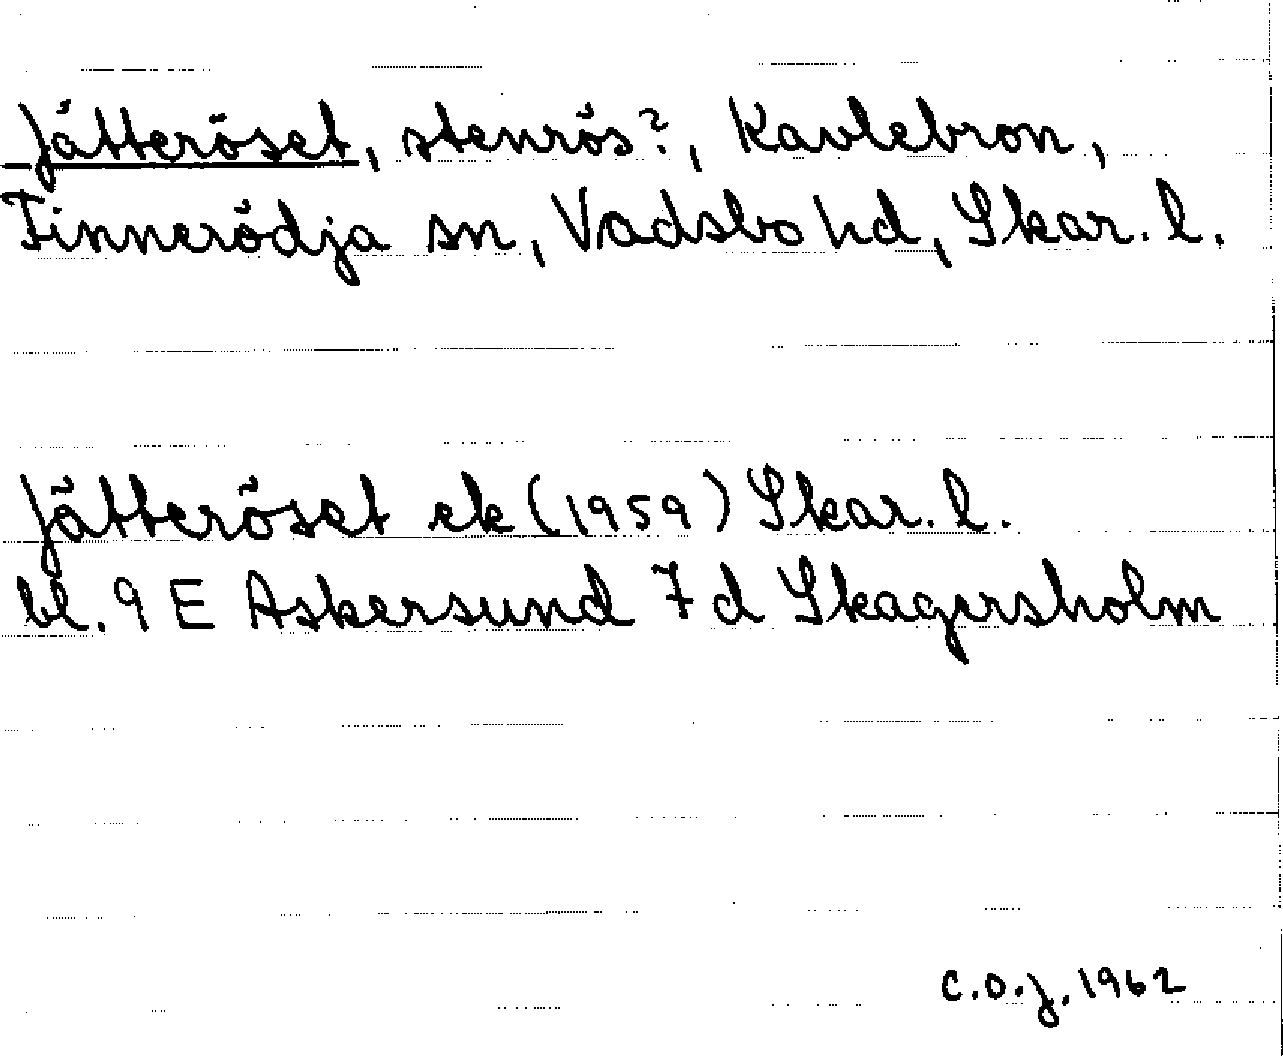 Jätteröset, stenrös?, Kavlebron,
Finnerödja sn, Vadsbo hd, Skar. l.
Jätteröset ek (1959) Skar. l.
bl. 9 E Askersund 7 d Skagersholm
C.O.J. 1962